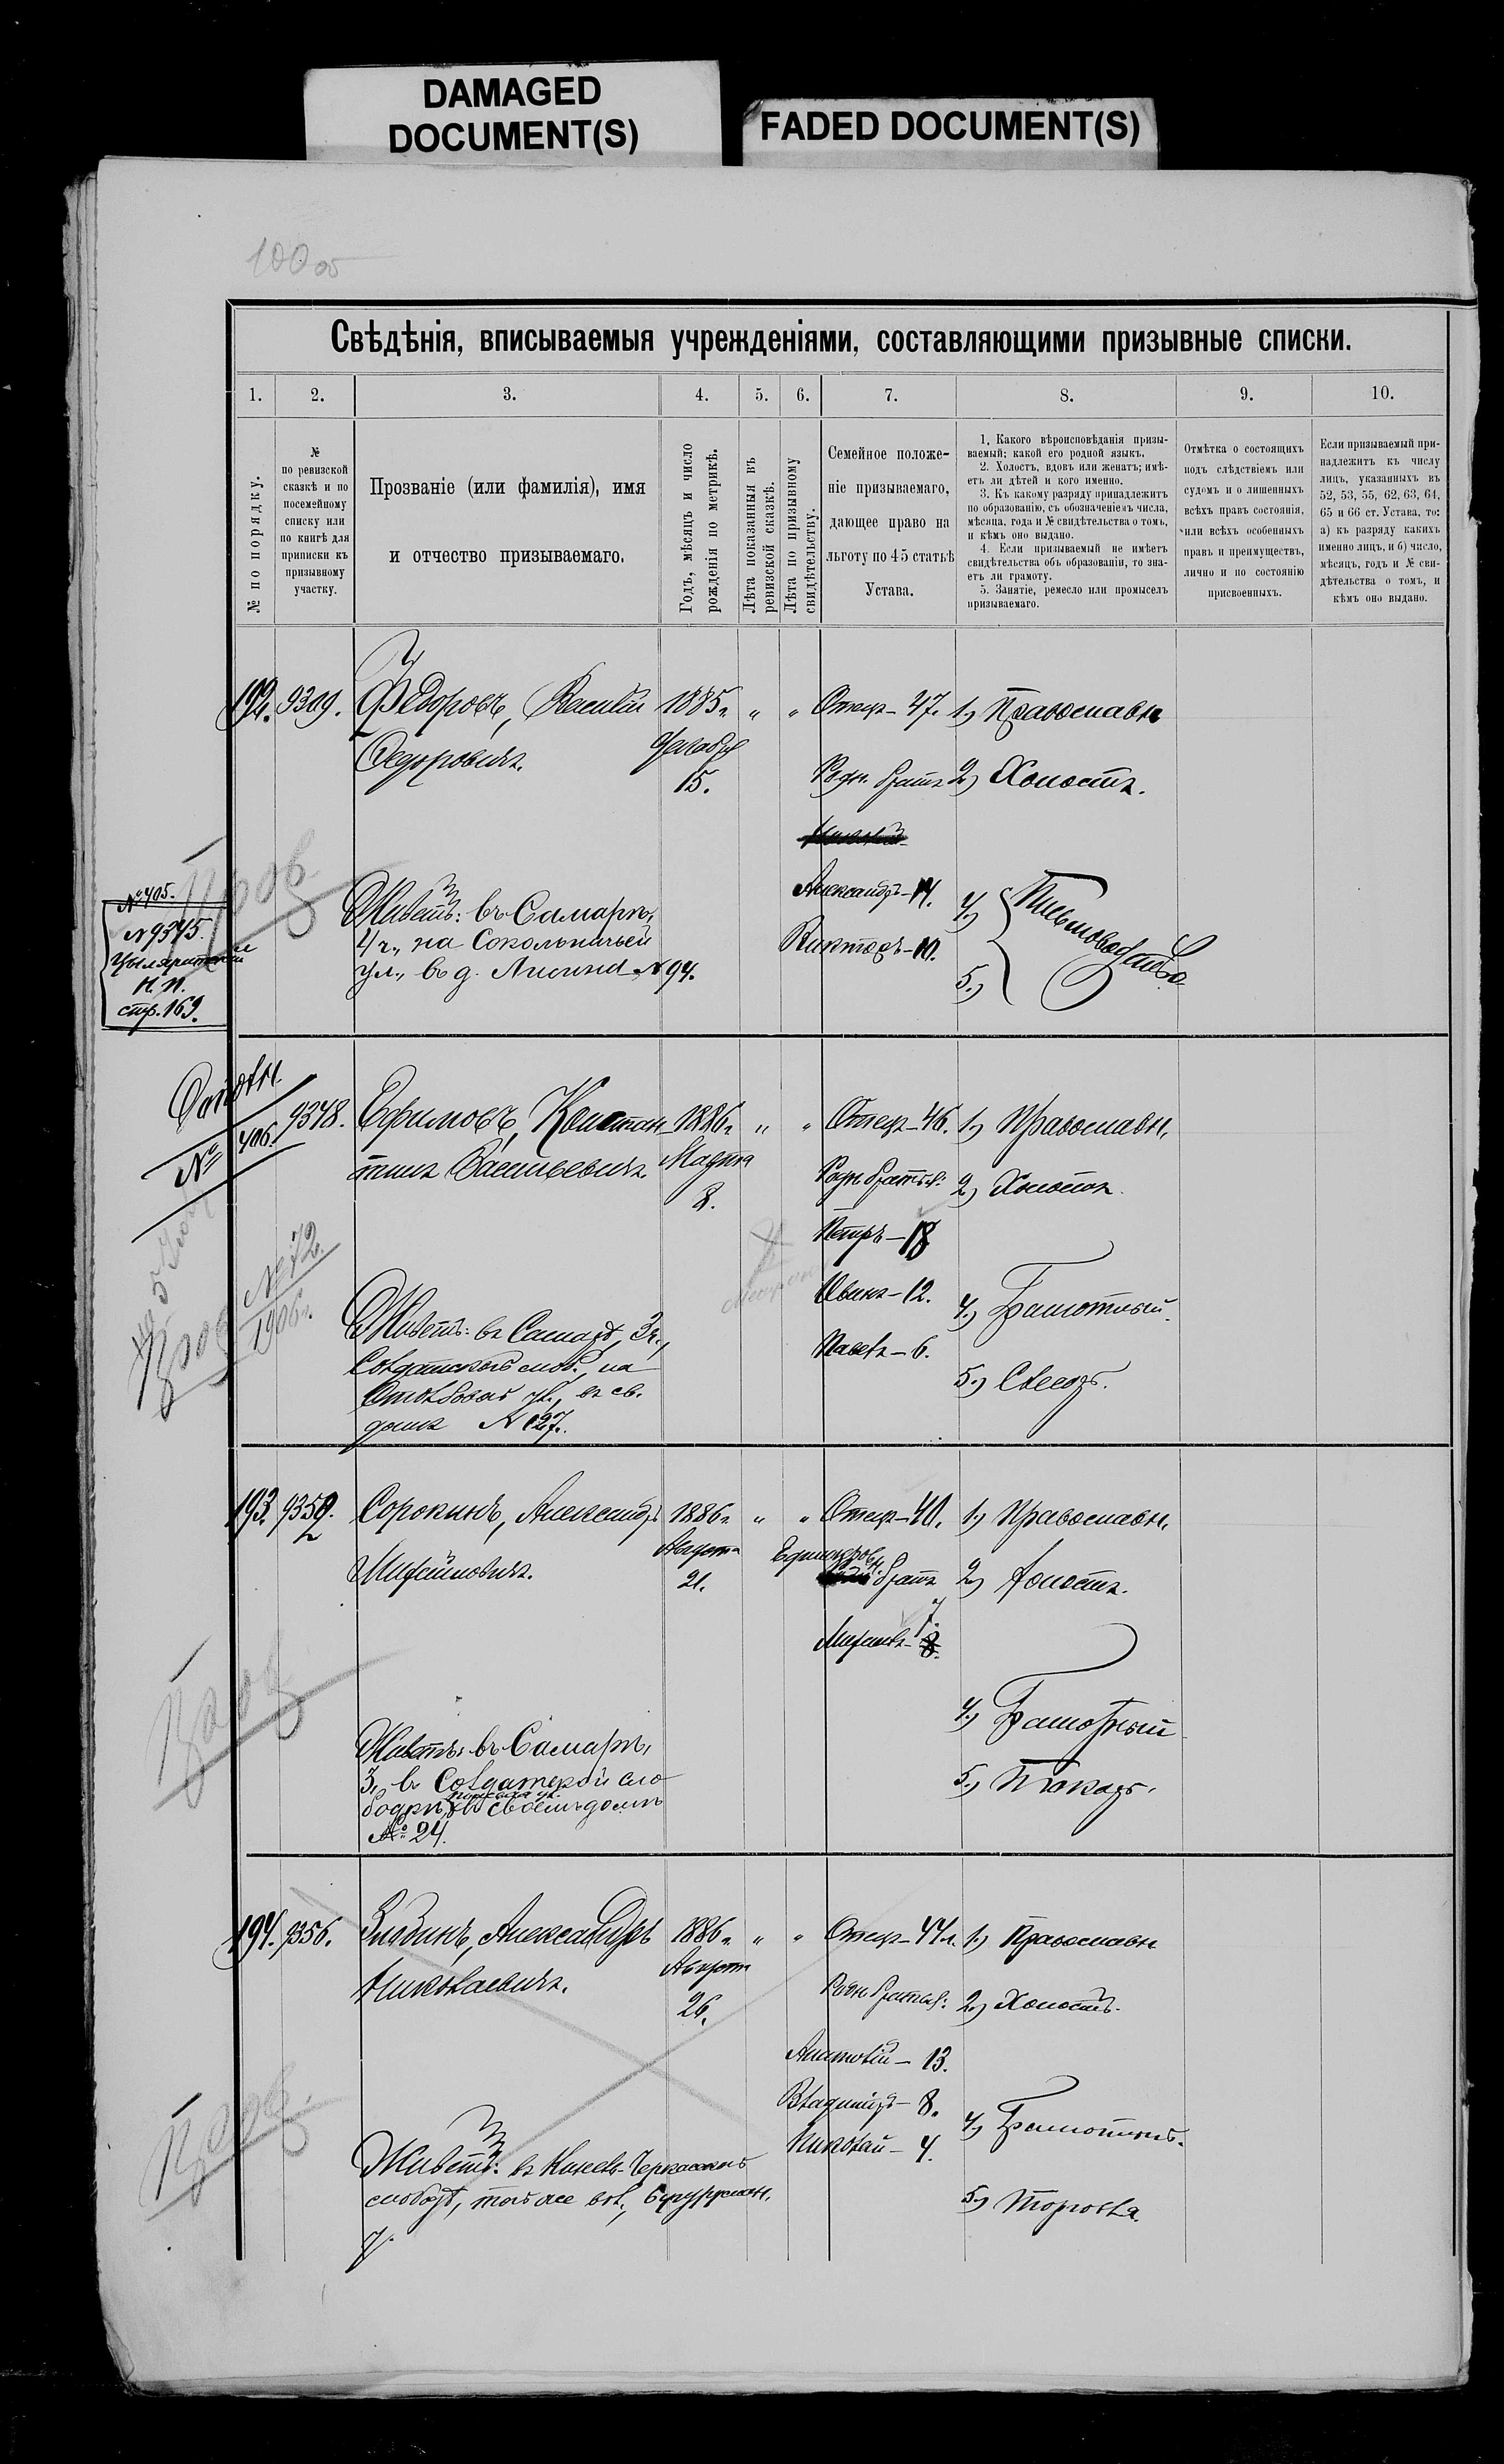 DAMAGED
DOCUMENT(S)
FADED DOCUMENT(S)
100
Свѣдѣнія, вписываемыя учрежденіями, составляющими призывные списки.
1.
2.
3.
4.
5.
6.
7.
8.
9.
10.
№ по порядку.
№
по ревизской
сказкѣ и по
посемейному
списку или
по книгѣ для
приписки къ
призывному
участку.
Прозваніе (или фамилія), имя
и отчество призываемаго.
Годъ, мѣсяцъ и число
рожденія по метрикѣ.
Лѣта показанныя въ
ревизской сказкѣ.
Лѣта по призывному
свидѣтельству.
Семейное положе-
ніе призываемаго,
дающее право на
льготу по 45 статьѣ
Устава.
1. Какого вѣроисповѣданія призы-
ваемый; какой его родной языкъ.
2. Холостъ, вдовъ или женатъ; имѣ-
етъ ли дѣтей и кого именно.
3. Къ какому разряду принадлежитъ
по образованію, съ обозначеніемъ числа,
мѣсяца, года и № свидѣтельства о томъ,
и кѣмъ оно выдано.
4. Если призываемый не имѣетъ
свидѣтельства объ образованіи, то зна-
етъ ли грамоту.
5. Занятіе, ремесло или промыселъ
призываемаго.
Отмѣтка о состоящихъ
подъ слѣдствіемъ или
судомъ и о лишенныхъ
всѣхъ правъ состоянія,
или всѣхъ особенныхъ
правъ и преимуществъ,
лично и по состоянію
присвоенныхъ.
Если призываемый при-
надлежитъ къ числу
лицъ, указанныхъ въ
52, 53, 55, 62, 63, 64,
65 и 66 ст. Устава, то:
а) къ разряду какихъ
именно лицъ, и б) число,
мѣсяцъ, годъ и № сви-
дѣтельства о томъ, и
кѣмъ оно выдано.
192. 9309. Федоровъ, Василій 1885г. " " Отец-47. 1) Православн
Федоровичъ. Декабря
15. Родн. братъ 2) Холостъ.
Александръ-14. 4)
Викторъ-10. 5) Письмоводство
Живетъ: въ Самарѣ,
4ч., на Сокольничьей
ул., въ д. № 94.
№ 405.
№ 9345.
Н. П.
стр. 169.
№ 406.
9348. Ефимовъ, Констан- 1886г. " " Отец-46. 1) Православн.
тинъ Васильевичъ. Марта
8. Родн. братья: 2) Холостъ
Петръ-18
Иванъ-12. 4) Грамотный.
Павелъ-6.
5) Слесарь.
№ 72
1906г.
Живетъ: въ Самарѣ, 3ч.,
Солдатской слоб., на
ул., въ св.
домѣ № 127.
193. 9350. Сорокинъ, Александръ 1886г. " " Отец-40. 1) Православн.
Михайловичъ. Августа
21. Единокровн. братъ 2) Холостъ.
Михаилъ-
4) Грамотный
5) Токарь.
Живетъ: въ Самарѣ,
3ч., въ Солдатской сло-
бодкѣ, въ своемъ домѣ
№ 24.
194. 9356. Зюзинъ, Александръ 1886г. " " Отец-44л. 1) Православн
Николаевичъ. Августа
26. Родн. братья: 2) Холостъ.
Анатолій-13.
Владиміръ-8.
Николай-4. 4) Грамотный.
5) Торговля.
Живетъ: въ Кинель-Черкасской
слободѣ, той же вол., Бугурусл.
у.